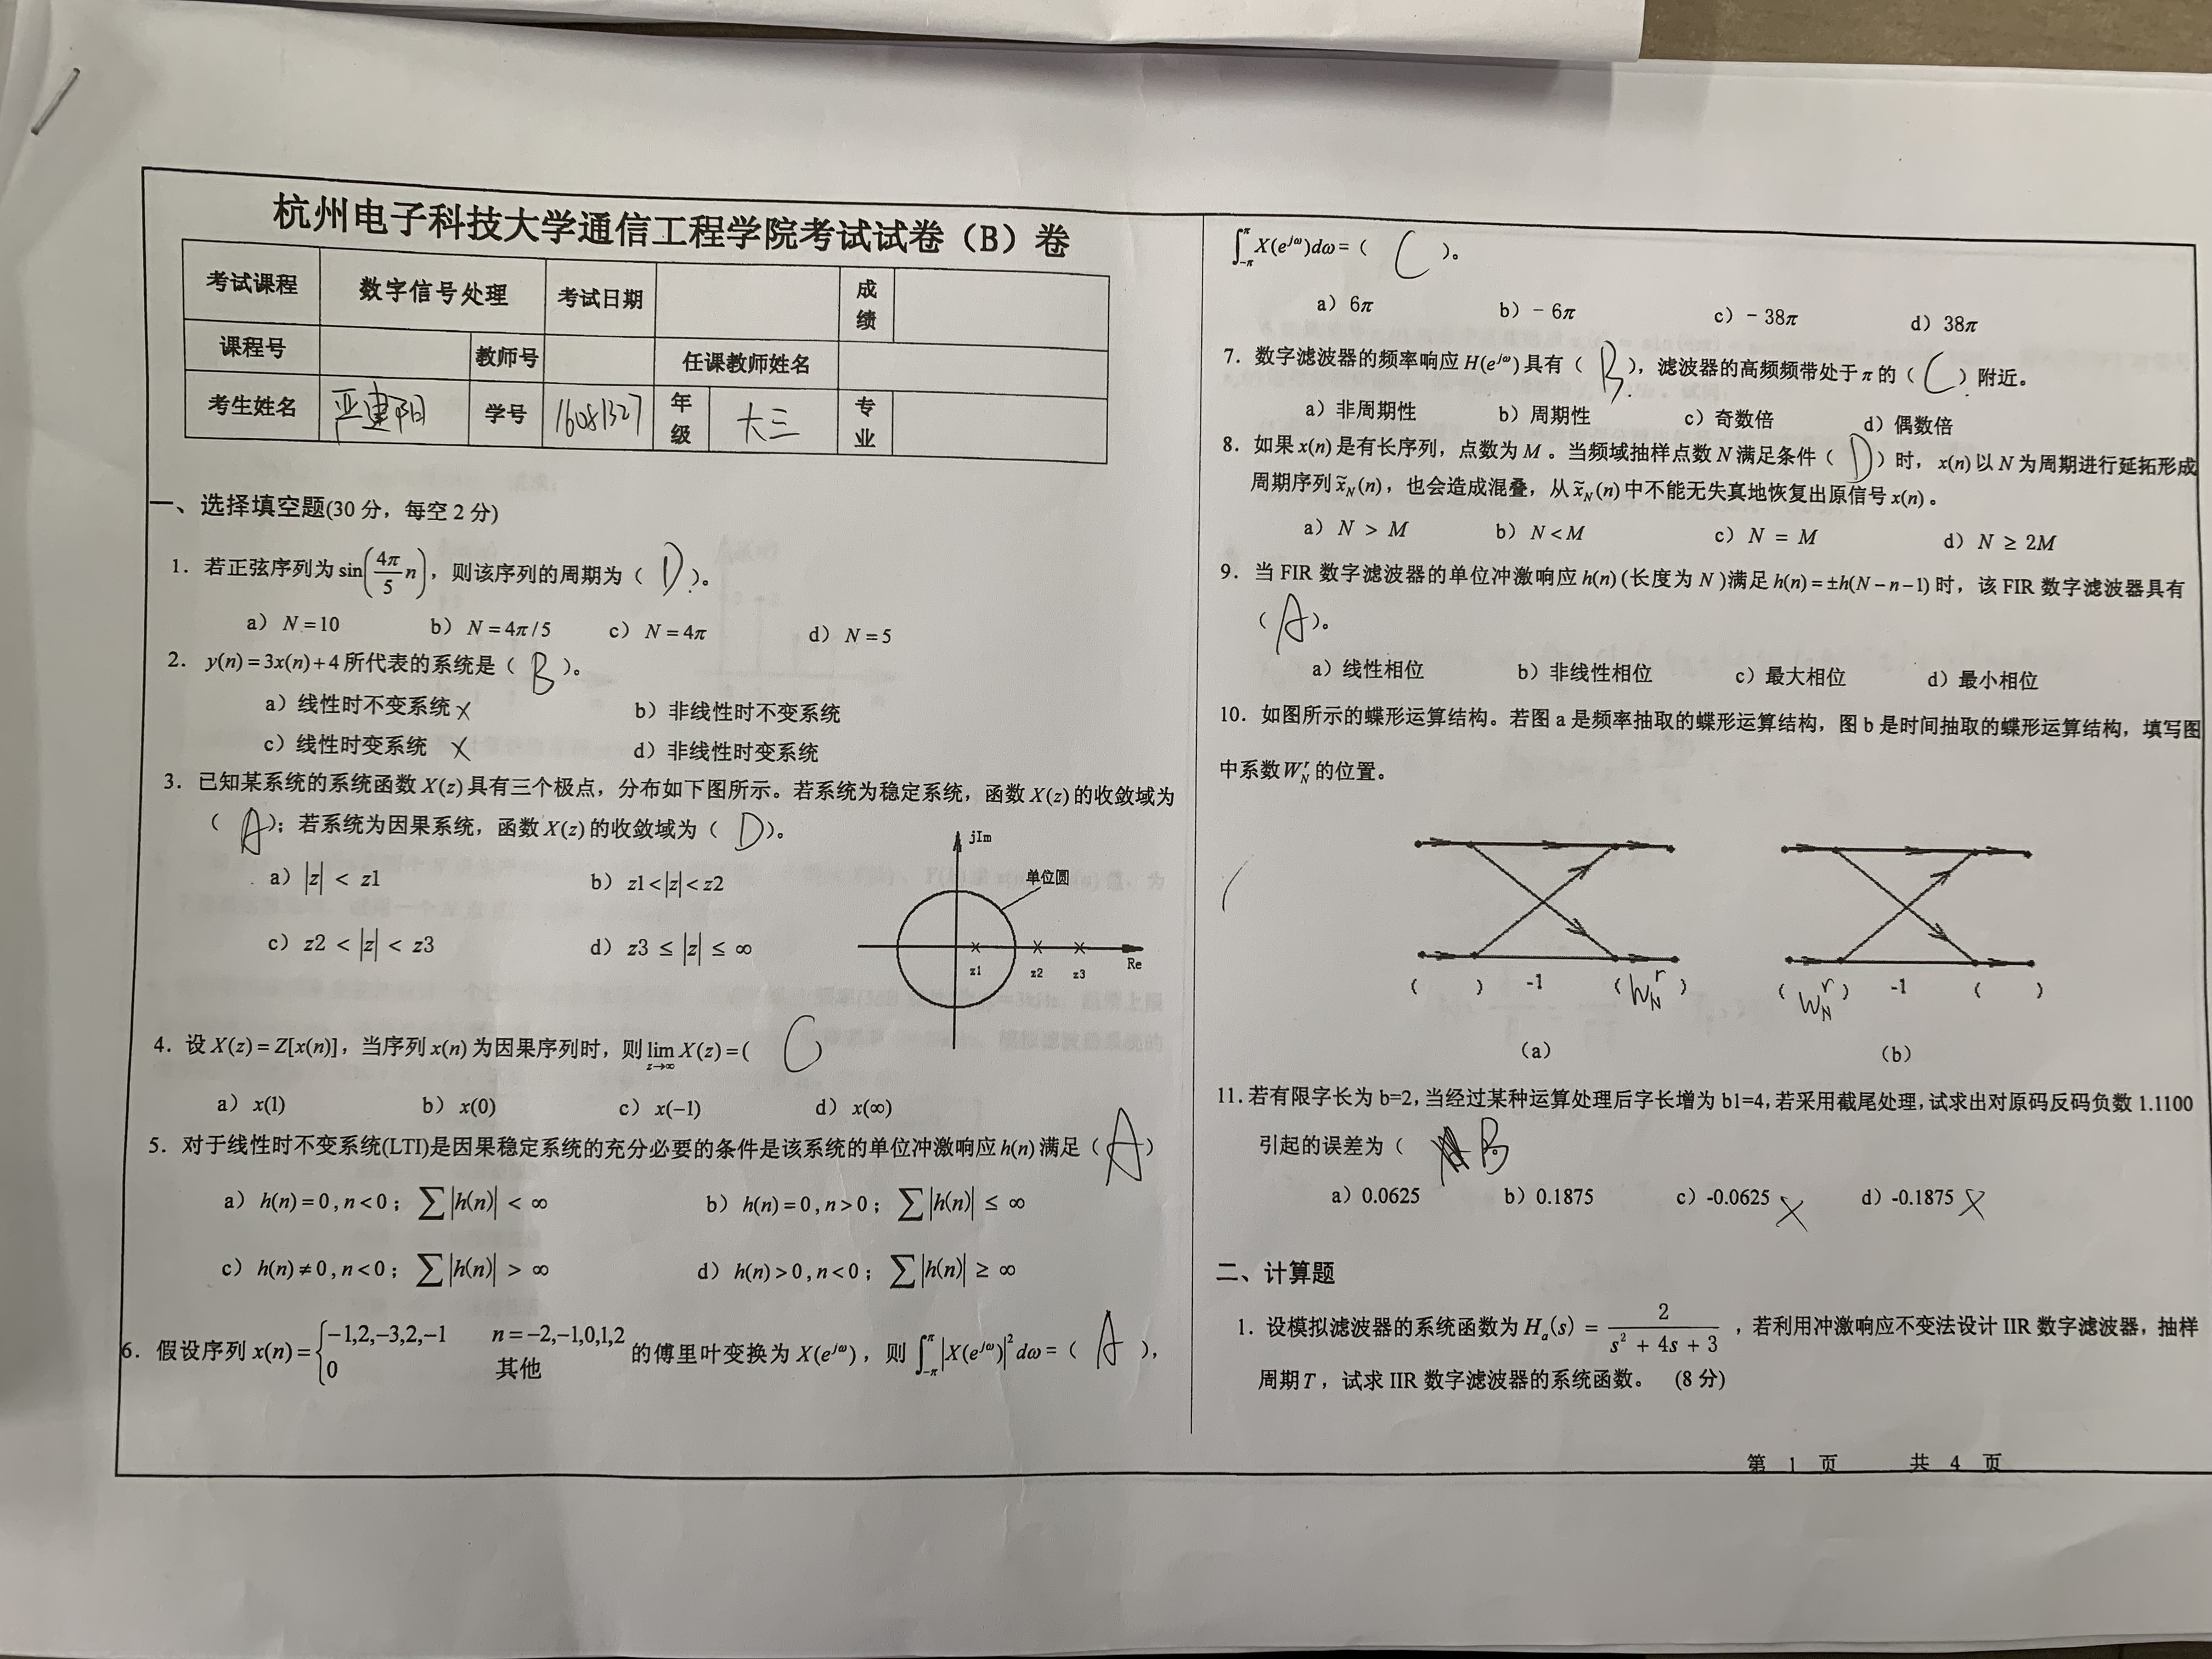 杭州电子科技大学通信工程学院考试试卷（B）卷
考试课程 数字信号处理 考试日期 成绩
课程号 教师号 任课教师姓名
考生姓名 严建阳 学号 16081327 年级 大三 专业
一、选择填空题(30分，每空2分)
1．若正弦序列为sin(4π/5 n)，则该序列的周期为（ D ）。
a）N=10 b）N=4π/5 c）N=4π d）N=5
2．y(n)=3x(n)+4所代表的系统是（ B ）。
a）线性时不变系统 × b）非线性时不变系统
c）线性时变系统 × d）非线性时变系统
3．已知某系统的系统函数X(z)具有三个极点，分布如下图所示。若系统为稳定系统，函数X(z)的收敛域为
（ A ）；若系统为因果系统，函数X(z)的收敛域为（ D ）。
a）|z| < z1 b）z1<|z|<z2
c）z2 < |z| < z3 d）z3 ≤ |z| ≤ ∞
jIm
单位圆
z1 z2 z3 Re
4．设X(z)=Z[x(n)]，当序列x(n)为因果序列时，则lim z→∞ X(z)=( C )
a）x(1) b）x(0) c）x(−1) d）x(∞)
5．对于线性时不变系统(LTI)是因果稳定系统的充分必要的条件是该系统的单位冲激响应h(n)满足（ A ）
a）h(n)=0,n<0；∑|h(n)| < ∞ b）h(n)=0,n>0；∑|h(n)| ≤ ∞
c）h(n)≠0,n<0；∑|h(n)| > ∞ d）h(n)>0,n<0；∑|h(n)| ≥ ∞
6．假设序列x(n)={−1,2,−3,2,−1 n=−2,−1,0,1,2
0 其他
的傅里叶变换为X(e^{jω})，则∫_{−π}^{π}|X(e^{jω})|²dω=（ A ），
∫_{−π}^{π}X(e^{jω})dω=（ C ）。
a）6π b）−6π c）−38π d）38π
7．数字滤波器的频率响应H(e^{jω})具有（ B ），滤波器的高频频带处于π的（ C ）附近。
a）非周期性 b）周期性 c）奇数倍 d）偶数倍
8．如果x(n)是有长序列，点数为M。当频域抽样点数N满足条件（ D ）时，x(n)以N为周期进行延拓形成
周期序列x̃_N(n)，也会造成混叠，从x̃_N(n)中不能无失真地恢复出原信号x(n)。
a）N > M b）N<M c）N = M d）N ≥ 2M
9．当FIR数字滤波器的单位冲激响应h(n)(长度为N)满足h(n)=±h(N−n−1)时，该FIR数字滤波器具有
（ A ）。
a）线性相位 b）非线性相位 c）最大相位 d）最小相位
10．如图所示的蝶形运算结构。若图a是频率抽取的蝶形运算结构，图b是时间抽取的蝶形运算结构，填写图
中系数W_N^r的位置。
( ) -1 ( W_N^r ) ( W_N^r ) -1 ( )
(a) (b)
11.若有限字长为b=2,当经过某种运算处理后字长增为b1=4,若采用截尾处理,试求出对原码反码负数1.1100
引起的误差为（ B
a）0.0625 b）0.1875 c）-0.0625 × d）-0.1875 ×
二、计算题
1．设模拟滤波器的系统函数为H_a(s) = 2/(s² + 4s + 3)，若利用冲激响应不变法设计IIR数字滤波器，抽样
周期T，试求IIR数字滤波器的系统函数。 (8分)
第 1 页 共 4 页